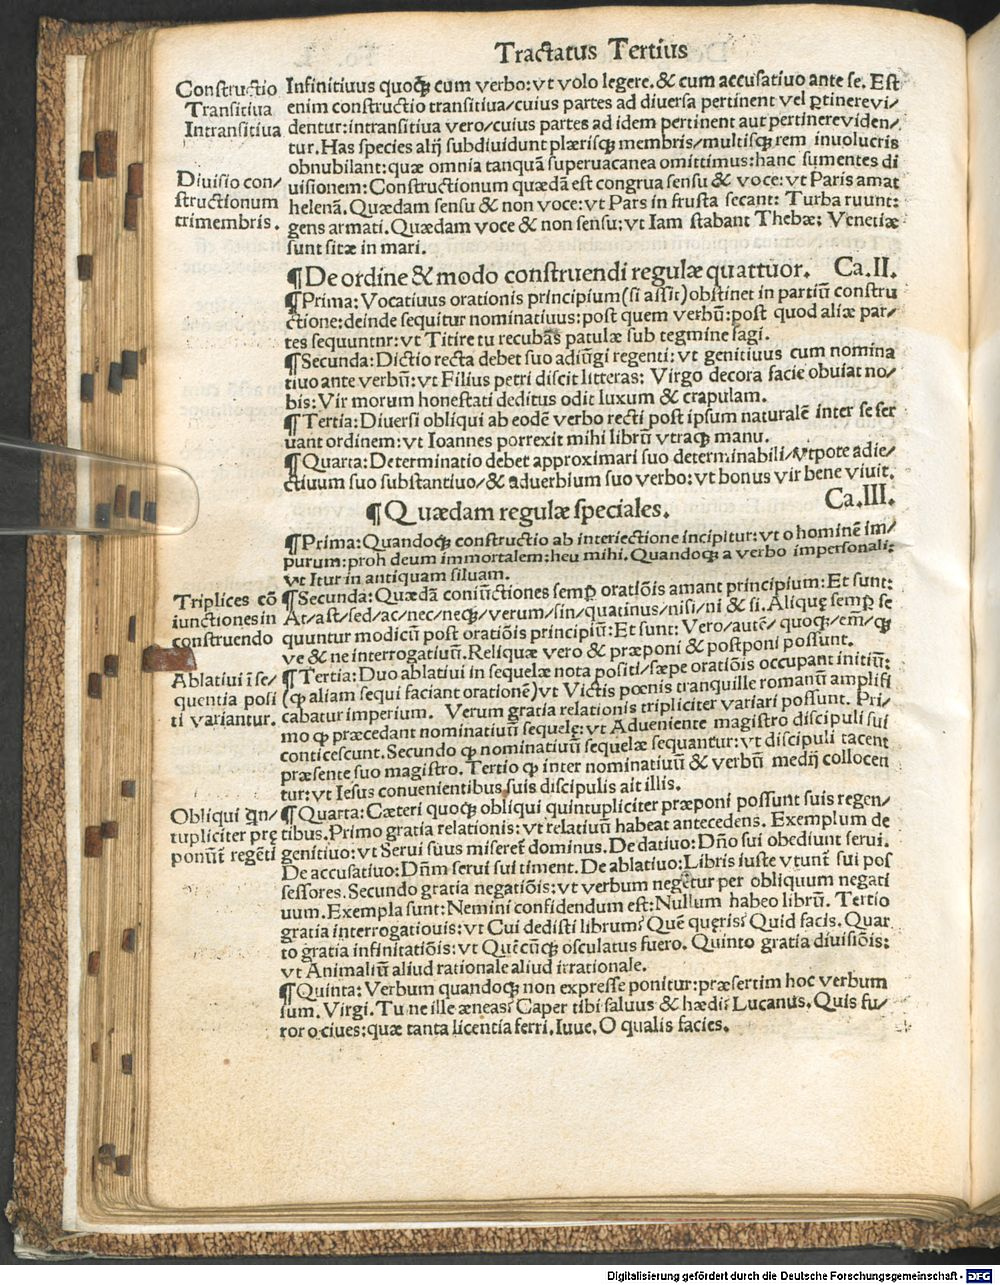 Tractatus Tertius
Constructio
Transitiua
Intransitiua
Infinitiuus quoqꝫ cum verbo: vt volo legere. & cum accusatiuo ante se. Est
enim constructio transitiua/cuius partes ad diuersa pertinent vel ꝑtinere vi/
dentur: intransitiua vero/cuius partes ad idem pertinent aut pertinere viden/
tur. Has species alij subdiuidunt plærisqꝫ membris/multisqꝫ rem inuolucris
obnubilant: quæ omnia tanquā superuacanea omittimus: hanc sumentes di
Diuisio con/
structionum
trimembris.
uisionem: Constructionum quædā est congrua sensu & voce: vt Paris amat
helenā. Quædam sensu & non voce: vt Pars in frusta secant: Turba ruunt:
gens armati. Quædam voce & non sensu: vt Iam stabant Thebæ: Venetiæ
sunt sitæ in mari.
¶De ordine & modo construendi regulæ quattuor. Ca.II.
¶Prima: Vocatiuus orationis principium (si assit) obstinet in partiū constru
ctione: deinde sequitur nominatiuus: post quem verbū: post quod aliæ par/
tes sequuntnr: vt Titire tu recubās patulæ sub tegmine fagi.
¶Secunda: Dictio recta debet suo adiūgi regenti: vt genitiuus cum nomina
tiuo ante verbū: vt Filius petri discit litteras: Virgo decora facie obuiat no/
bis: Vir morum honestati deditus odit luxum & crapulam.
¶Tertia: Diuersi obliqui ab eodē verbo recti post ipsum naturalē inter se ser
uant ordinem: vt Ioannes porrexit mihi librū vtraqꝫ manu.
¶Quarta: Determinatio debet approximari suo determinabili/vtpote adie/
ctiuum suo substantiuo/& aduerbium suo verbo: vt bonus vir bene viuit.
¶Quædam regulæ speciales. Ca.III.
¶Prima: Quandoqꝫ constructio ab interiectione incipitur: vt o hominē im/
purum: proh deum immortalem: heu mihi. Quandoqꝫ a verbo impersonali:
vt Itur in antiquam siluam.
Triplices cō
iunctiones in
construendo
¶Secunda: Quædā coniūctiones semꝑ oratiōis amant principium: Et sunt:
At/ast/sed/ac/nec/neqꝫ/verum/sin/quatinus/nisi/ni & si. Aliquę semꝑ se
quuntur modicū post oratiōis principiū: Et sunt: Vero/autē/quoqꝫ/em/qꝫ
ve & ne interrogatiuū. Reliquæ vero & præponi & postponi possunt.
Ablatiui ī se/
quentia posi
ti variantur.
¶Tertia: Duo ablatiui in sequelæ nota positi/sæpe oratiōis occupant initiū:
(ꝙ aliam sequi faciant orationē) vt Victis pœnis tranquille romanū amplifi
cabatur imperium. Verum gratia relationis tripliciter variari possunt. Pri/
mo ꝙ præcedant nominatiuū sequelę: vt Adueniente magistro discipuli sui
conticescunt. Secundo ꝙ nominatiuū sequelæ sequantur: vt discipuli tacent
præsente suo magistro. Tertio ꝙ inter nominatiuū & verbū medij collocen
tur: vt Iesus conuenientibus suis discipulis ait illis.
Obliqui qn̄/
tupliciter prę
ponūt regēti
¶Quarta: Cæteri quoqꝫ obliqui quintupliciter præponi possunt suis regen/
tibus. Primo gratia relationis: vt relatiuū habeat antecedens. Exemplum de
genitiuo: vt Serui suus miseret dominus. De datiuo: Dño sui obediunt serui.
De accusatiuo: Dñm serui sui timent. De ablatiuo: Libris iuste vtunt̄ sui pos
sessores. Secundo gratia negatiōis: vt verbum negetur per obliquum negati
uum. Exempla sunt: Nemini confidendum est: Nullum habeo librū. Tertio
gratia interrogatiouis: vt Cui dedisti librum? Quē quęris? Quid facis. Quar
to gratia infinitatiōis: vt Quēcūqꝫ osculatus fuero. Quinto gratia diuisiōis:
vt Animaliū aliud rationale aliud irrationale.
¶Quinta: Verbum quandoqꝫ non expresse ponitur: præsertim hoc verbum
sum. Virgi. Tu ne ille æneas? Caper tibi saluus & hædi: Lucanus. Quis fu/
ror o ciues: quæ tanta licentia ferri. Iuue. O qualis facies.
Digitalisierung gefördert durch die Deutsche Forschungsgemeinschaft - DFG